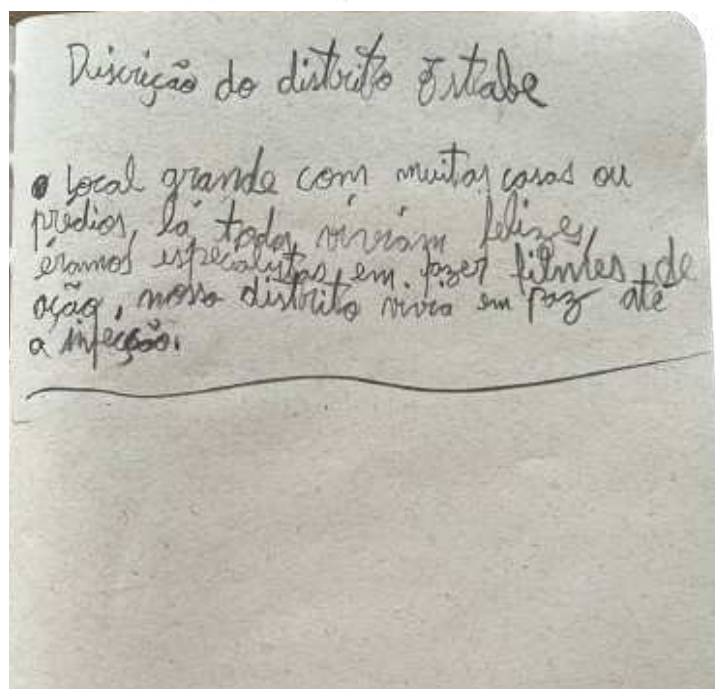 Discrição do distrito Estabe
• Local grande com muitas casas ou
prédios, lá todos viviam felizes,
éramos especalistas em fazer de
ação, nosso distrito vivia em paz até
a infecção.